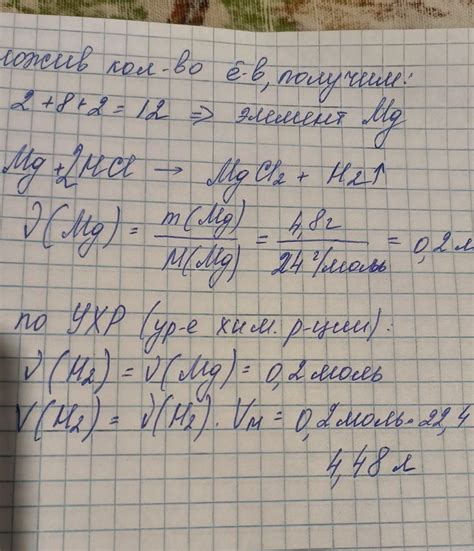 ложив кол-во ē-в, получим:
2+8+2=12 => элемент Mg
Mg+2HCl → MgCl2 + H2↑
ν(Mg) = m(Mg)/M(Mg) = 4,8г/24 г/моль = 0,2 м
по УХР (ур-е хим. р-ции):
ν(H2) = ν(Mg) = 0,2 моль
V(H2) = ν(H2) · Vм = 0,2 моль · 22,4
4,48 л